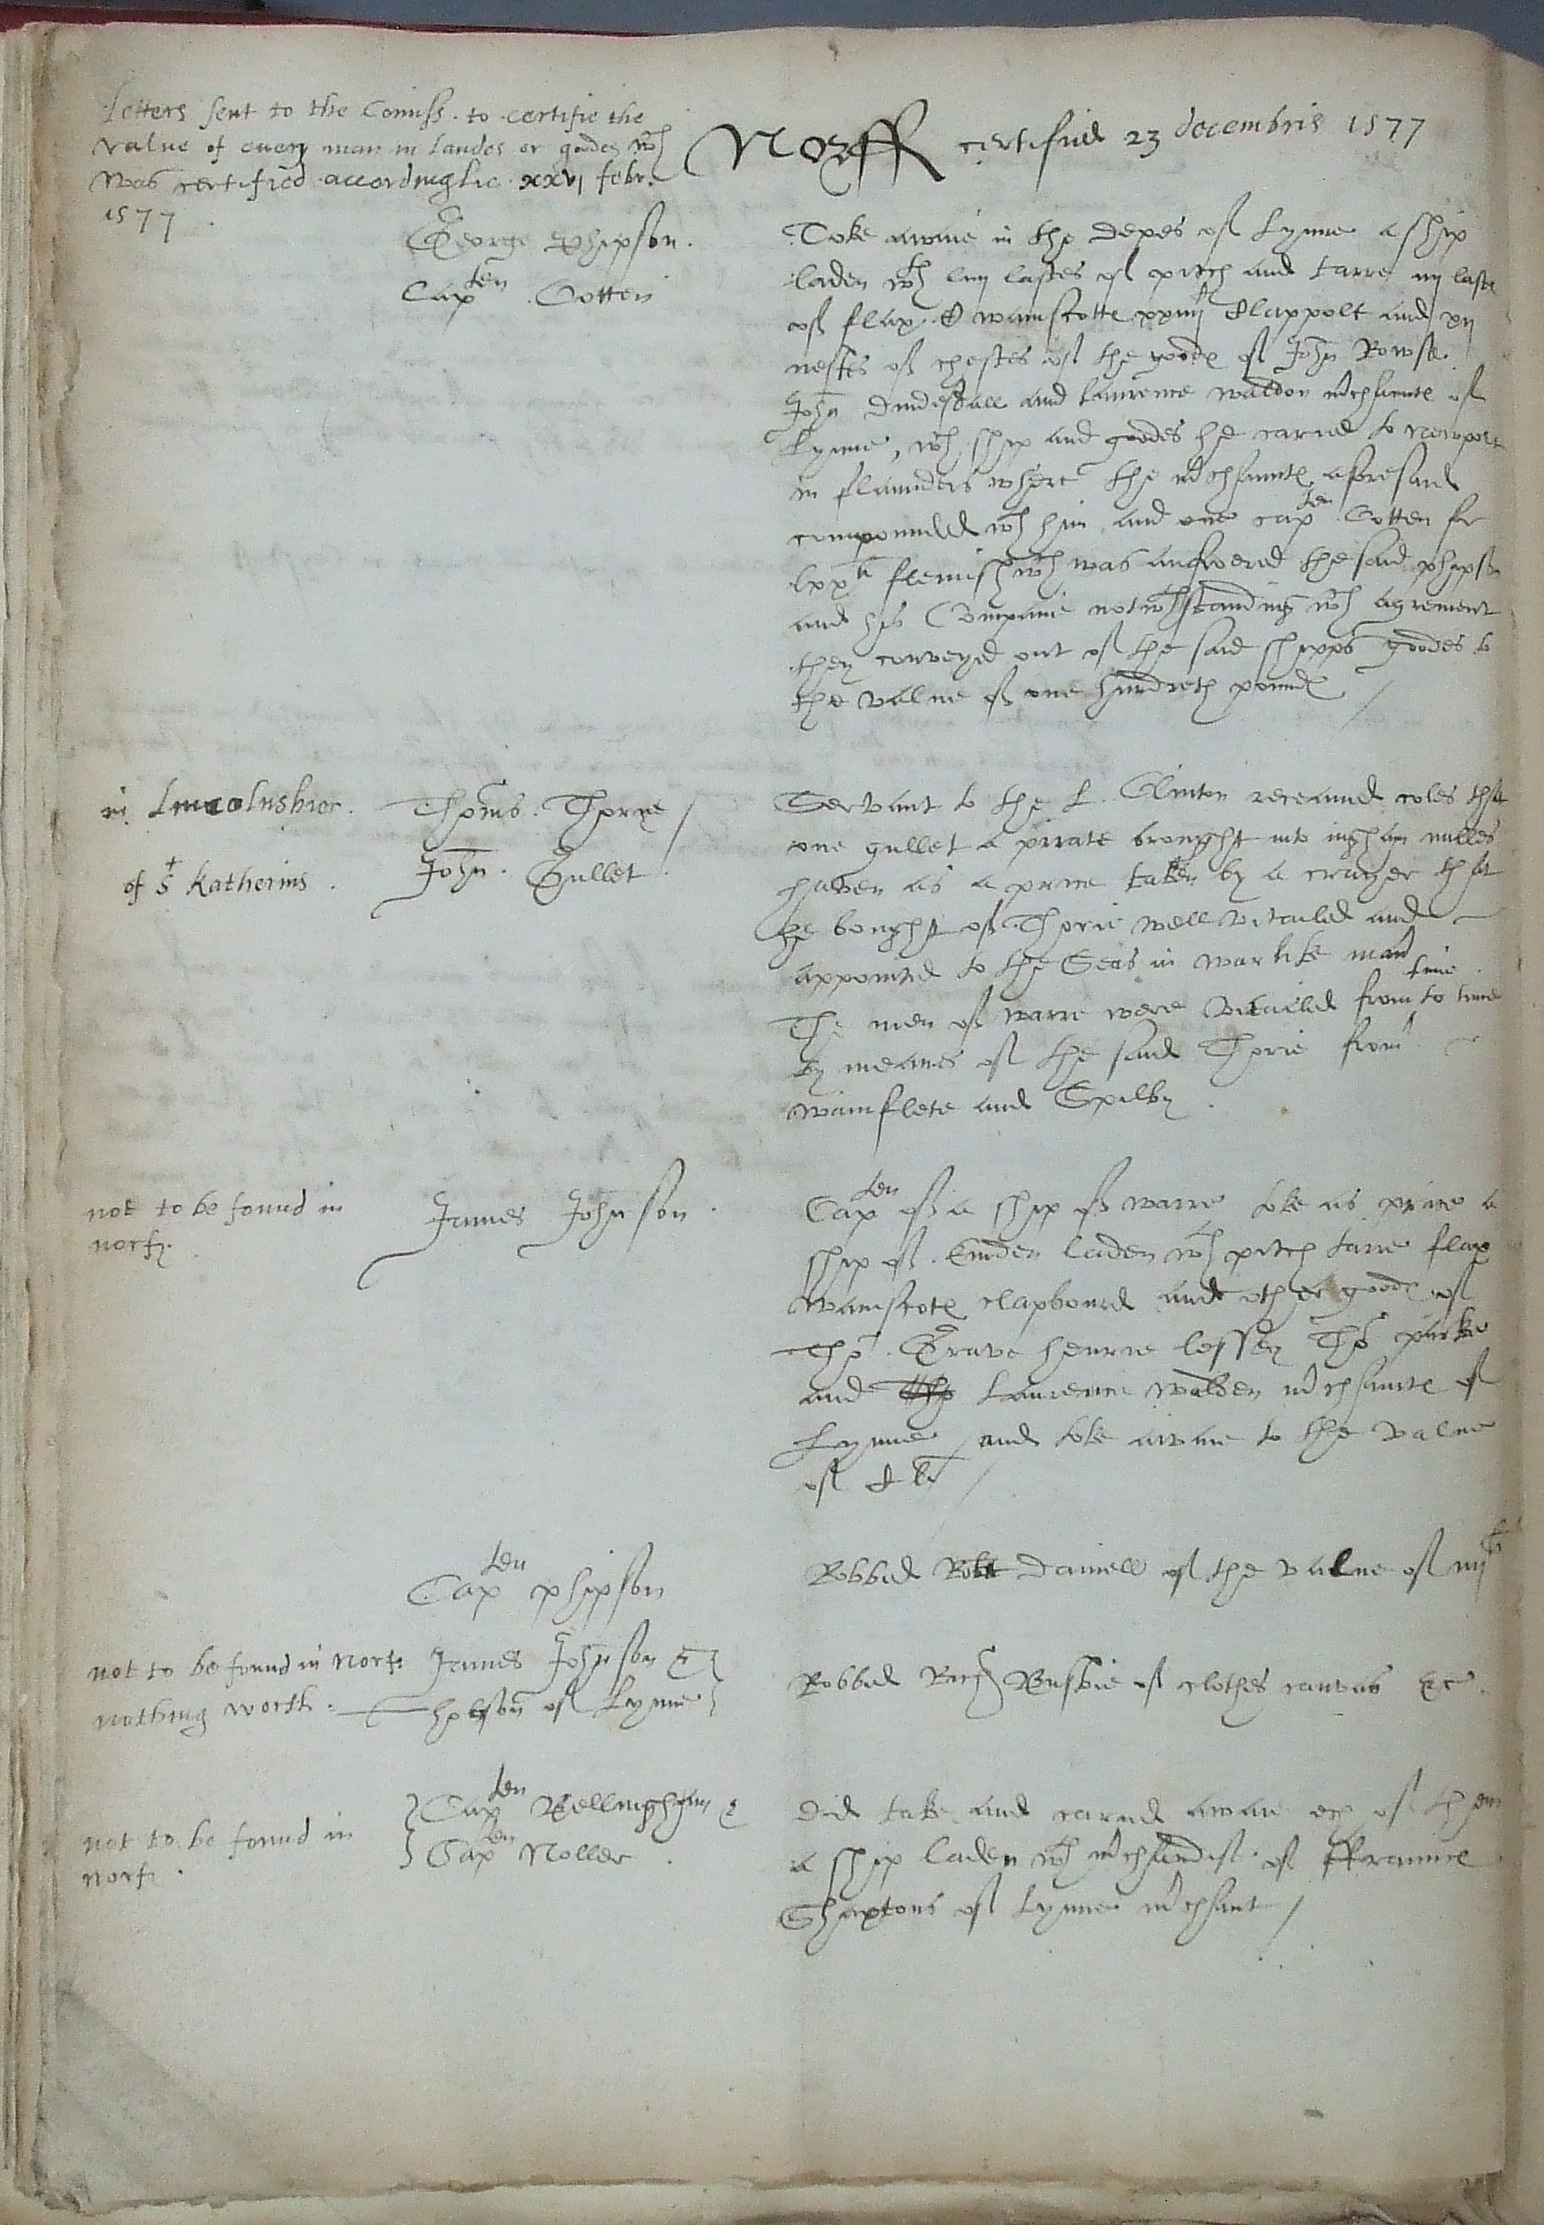 Letters sent to the Comiss. to certifie the
value of euery man in landes or goodes wch
was certified accordinglie xxvj febr.
1577
Norff certified 23 decembris 1577
George Phipson.
Capten Cotten
Toke awaie in the depes of Lynne a ship
laden wth liij lastes of pitch and tarre iiij laste
of flax wainscotte xxiiij Clappolt and xij
nestes of chestes of the goodes of John Rowse
John and Laurence waldon mchauntes of
Lynne, wch ship and goodes he caried to newport
in flaunders where the mchauntes aforesaid
compounded wth him and one capten Cotten for
lxxli flemish wch was answered the said phipson
and his Companie notwthstanding wch agrement
they conveyed out of the said shipps goodes to
the value of one hundreth poundes /
in Lincolnshier.
Thomas Thorie /
of St Katherins.
John Gullet.
Servant to the L. Clinton receaued coles that
one gullet a pirate brought into ingham milles
haven as a price taken by a crayer that
he bought of Thorie well vitailed and
appointed to the Seas in warlike man
The men of warre were vitailed from time to time
by meanes of the said Thorie from
wainflete and Spilby.
not to be found in
norf.
James Johnson.
Capten of a ship of warre toke as price a
ship of Emden laden wth pitch tarre flax
wainscotes clapbourd and other goodes of
Tho. Grave henrie lessey Tho parke
and Laurence walden mchauntes of
Lynne / and toke awaie to the value
of /
Capten phipson
Robbed Robt Daniell of the value of iiijli
not to be found in norf:
James Johnson &
nothing worth.
hobson of Lynne
Robbed Rich Busbie of clothes canvas &c.
not to be found in
norf.
Capten Bellingham &
Capten Noller.
Did take and caried awaie ech of them
a ship laden wth mchandise of ffraunce
Shaxtons of Lynne mchant /